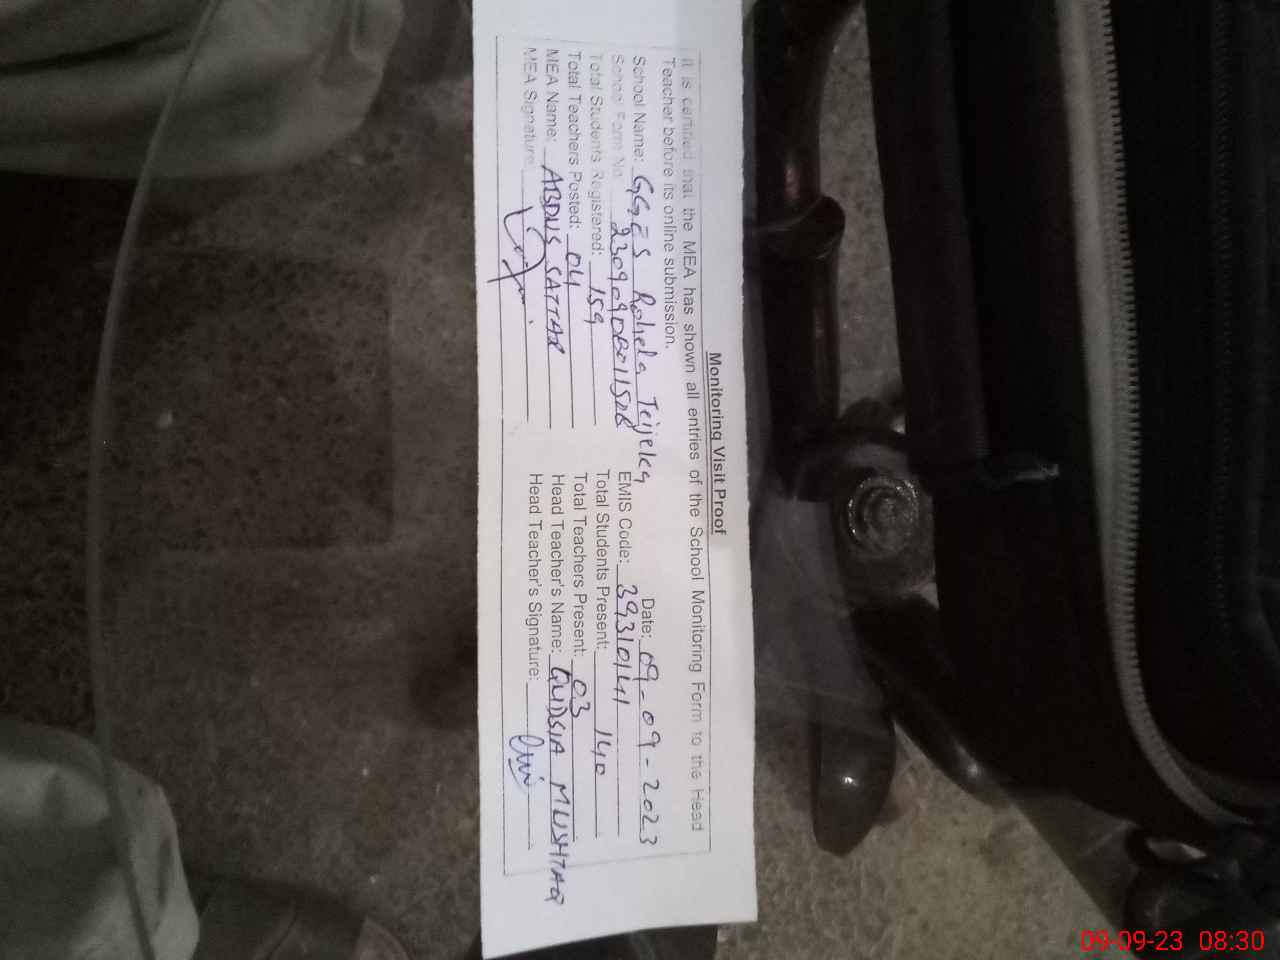 Monitoring Visit Proof
It is certified that the MEA has shown all entries of the School Monitoring Form to the Head
Teacher before its online submission.
Date: 09-09-2023
School Name: GGES Rohela Teijeka
School Form No. EMIS Code: 39310141
Total Students Registered: 159 Total Students Present: 140
Total Teachers Posted: 04 Total Teachers Present: 03
MEA Name: ABDUS SATTAR Head Teacher's Name: QUDSIA MUSHTAQ
MEA Signature: Head Teacher's Signature:
09-09-23 08:30